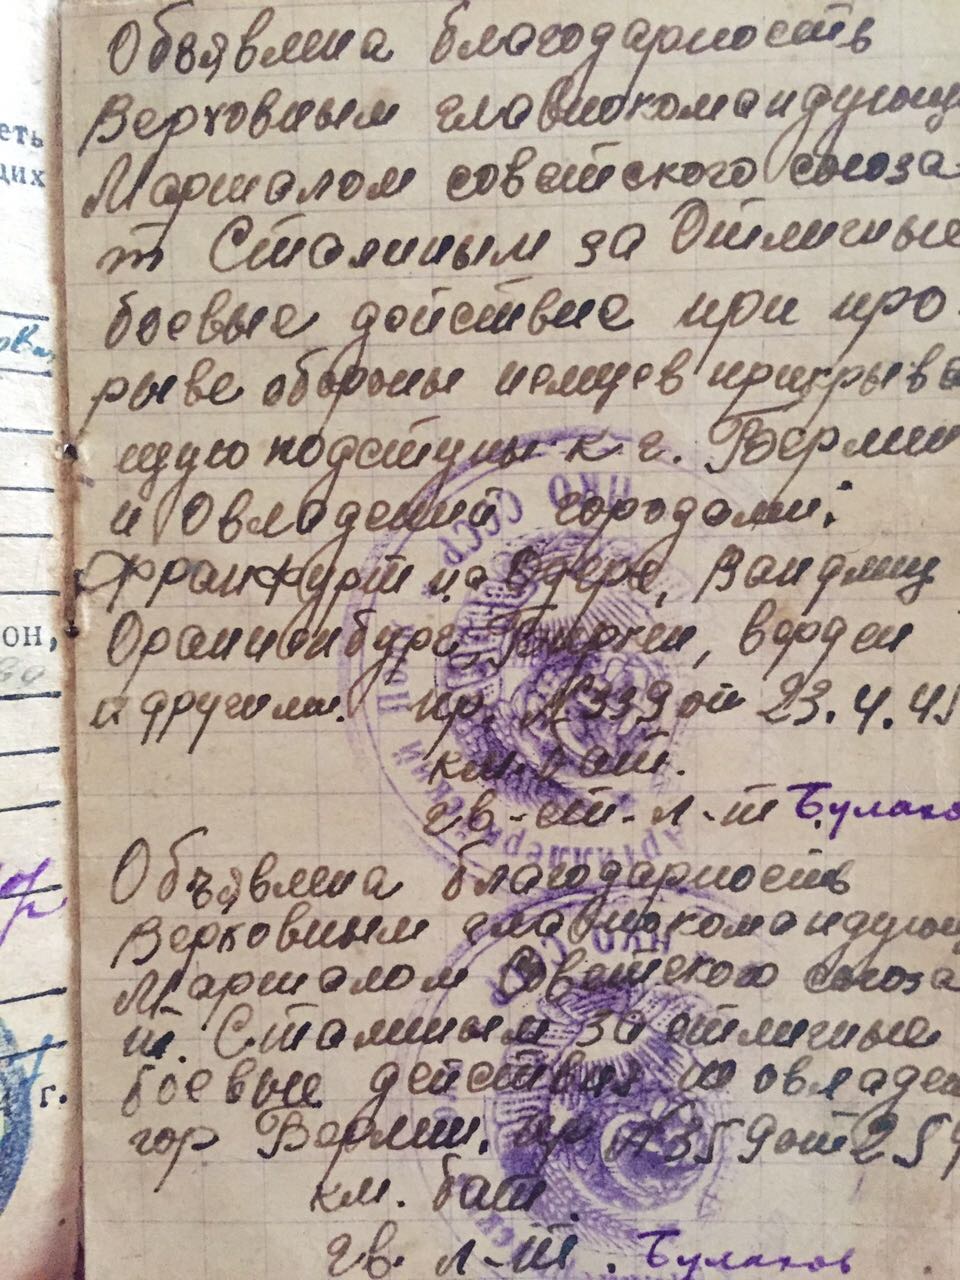 Объявлена благодарность
Верховным главнокомандующ
Маршалом советского союза
т Сталиным за Отличные
боевые действие при про-
рыве обороны немцев прикрыва
щую подступы к г. Берлин
и Овладений городами:
Франкфурт на Одере, Вандлиц
Ораниенбург, Биркен, верден
и другими. пр. №339 от 23.4.45
км. бат.
гв-ст-л-т Булако
Объявлена благодарность
Верховным главнокомандующ
Маршалом Советского союза
т. Сталиным за отличные
боевые действия по овладен
гор Берлин. пр №359 от 2 5
км. бат.
гв. л-т. Булаков
еть
щих
он,
г.
НКО СССР
Артиллерийский
НКО СССР